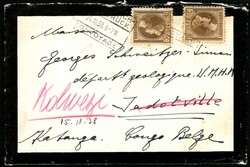 Monsieur
Georges Schreitzer-Simon
départ géologique U.M.H.K
Kolwezi
Jadotville
15.11.38
Katanga Congo Belge